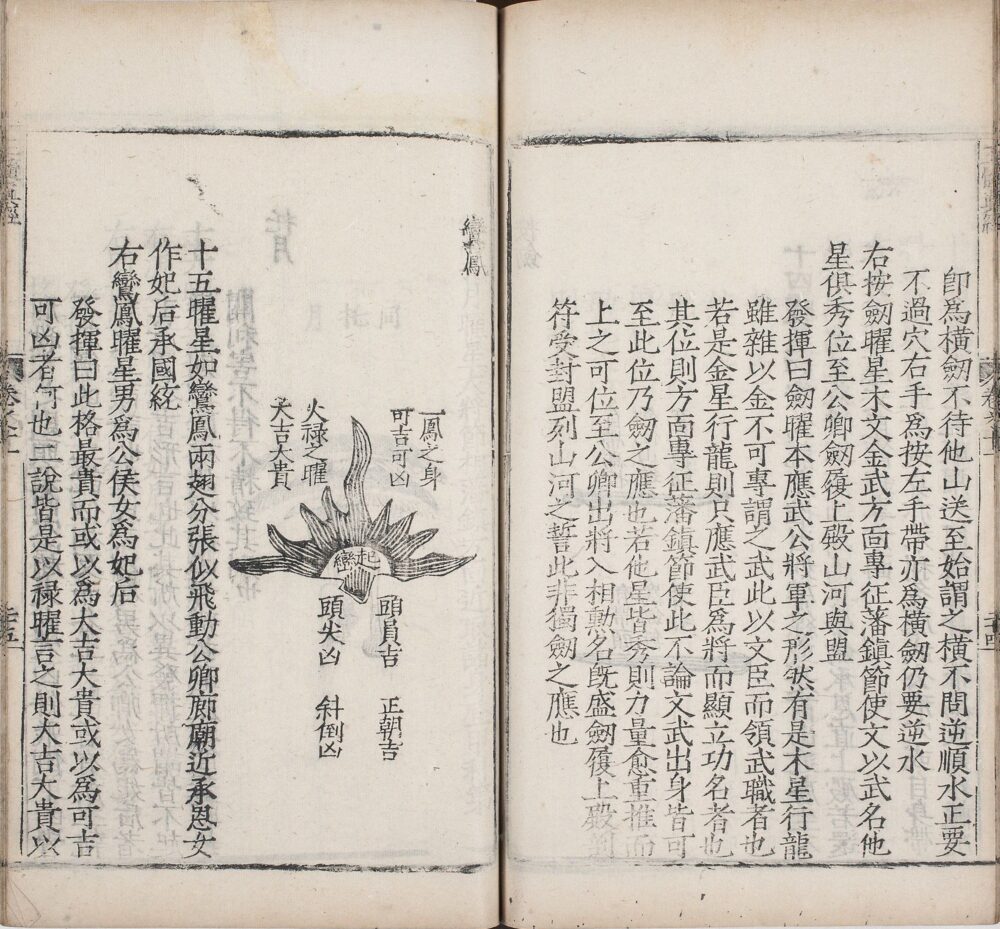 卽爲橫劒不待他山送至始謂之橫不問逆順水正要
不過穴右手爲按左手帶亦爲橫劒仍要逆水
右按劒曜星木文金武方面專征藩鎮節使文以武名他
星俱秀位至公卿劒履上殿山河與盟
發揮曰劒曜本應武公將軍之形然有是木星行龍
雖雜以金不可專謂之武此以文臣而領武職者也
若是金星行龍則只應武臣爲將而顯立功名者也
其位則方面專征藩鎮節使此不論文武出身皆可
至此位乃劒之應也若他星皆秀則力量愈重推而
上之可位至公卿出將入相勳名旣盛劒履上殿剖
符受封盟列山河之誓此非獨劒之應也
鸞鳳
一鳳之身
可吉可凶
火祿之曜
大吉大貴
起鸞
頭員吉 正朝吉
頭尖凶 斜倒凶
十五曜星如鸞鳳兩翅分張似飛動公卿廊廟近承恩女
作妃后承國統
右鸞鳳曜星男爲公侯女爲妃后
發揮曰此格最貴而或以爲大吉大貴或以爲可吉
可凶者何也二說皆是以祿曜言之則大吉大貴以